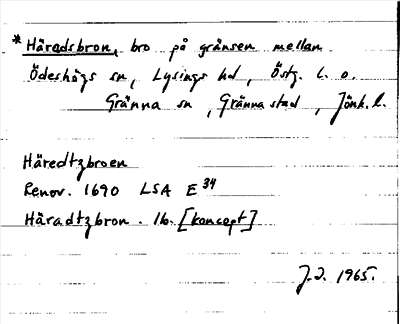 * Häradsbron, bro på gränsen mellan
Ödeshögs sn, Lysings hd, Östg. l. o.
Gränna sn, Gränna stad, Jönk. l.
Häredtzbroen
Renov. 1690 LSA E 34
Häradtzbron. Ib. [koncept]
J.J. 1965.